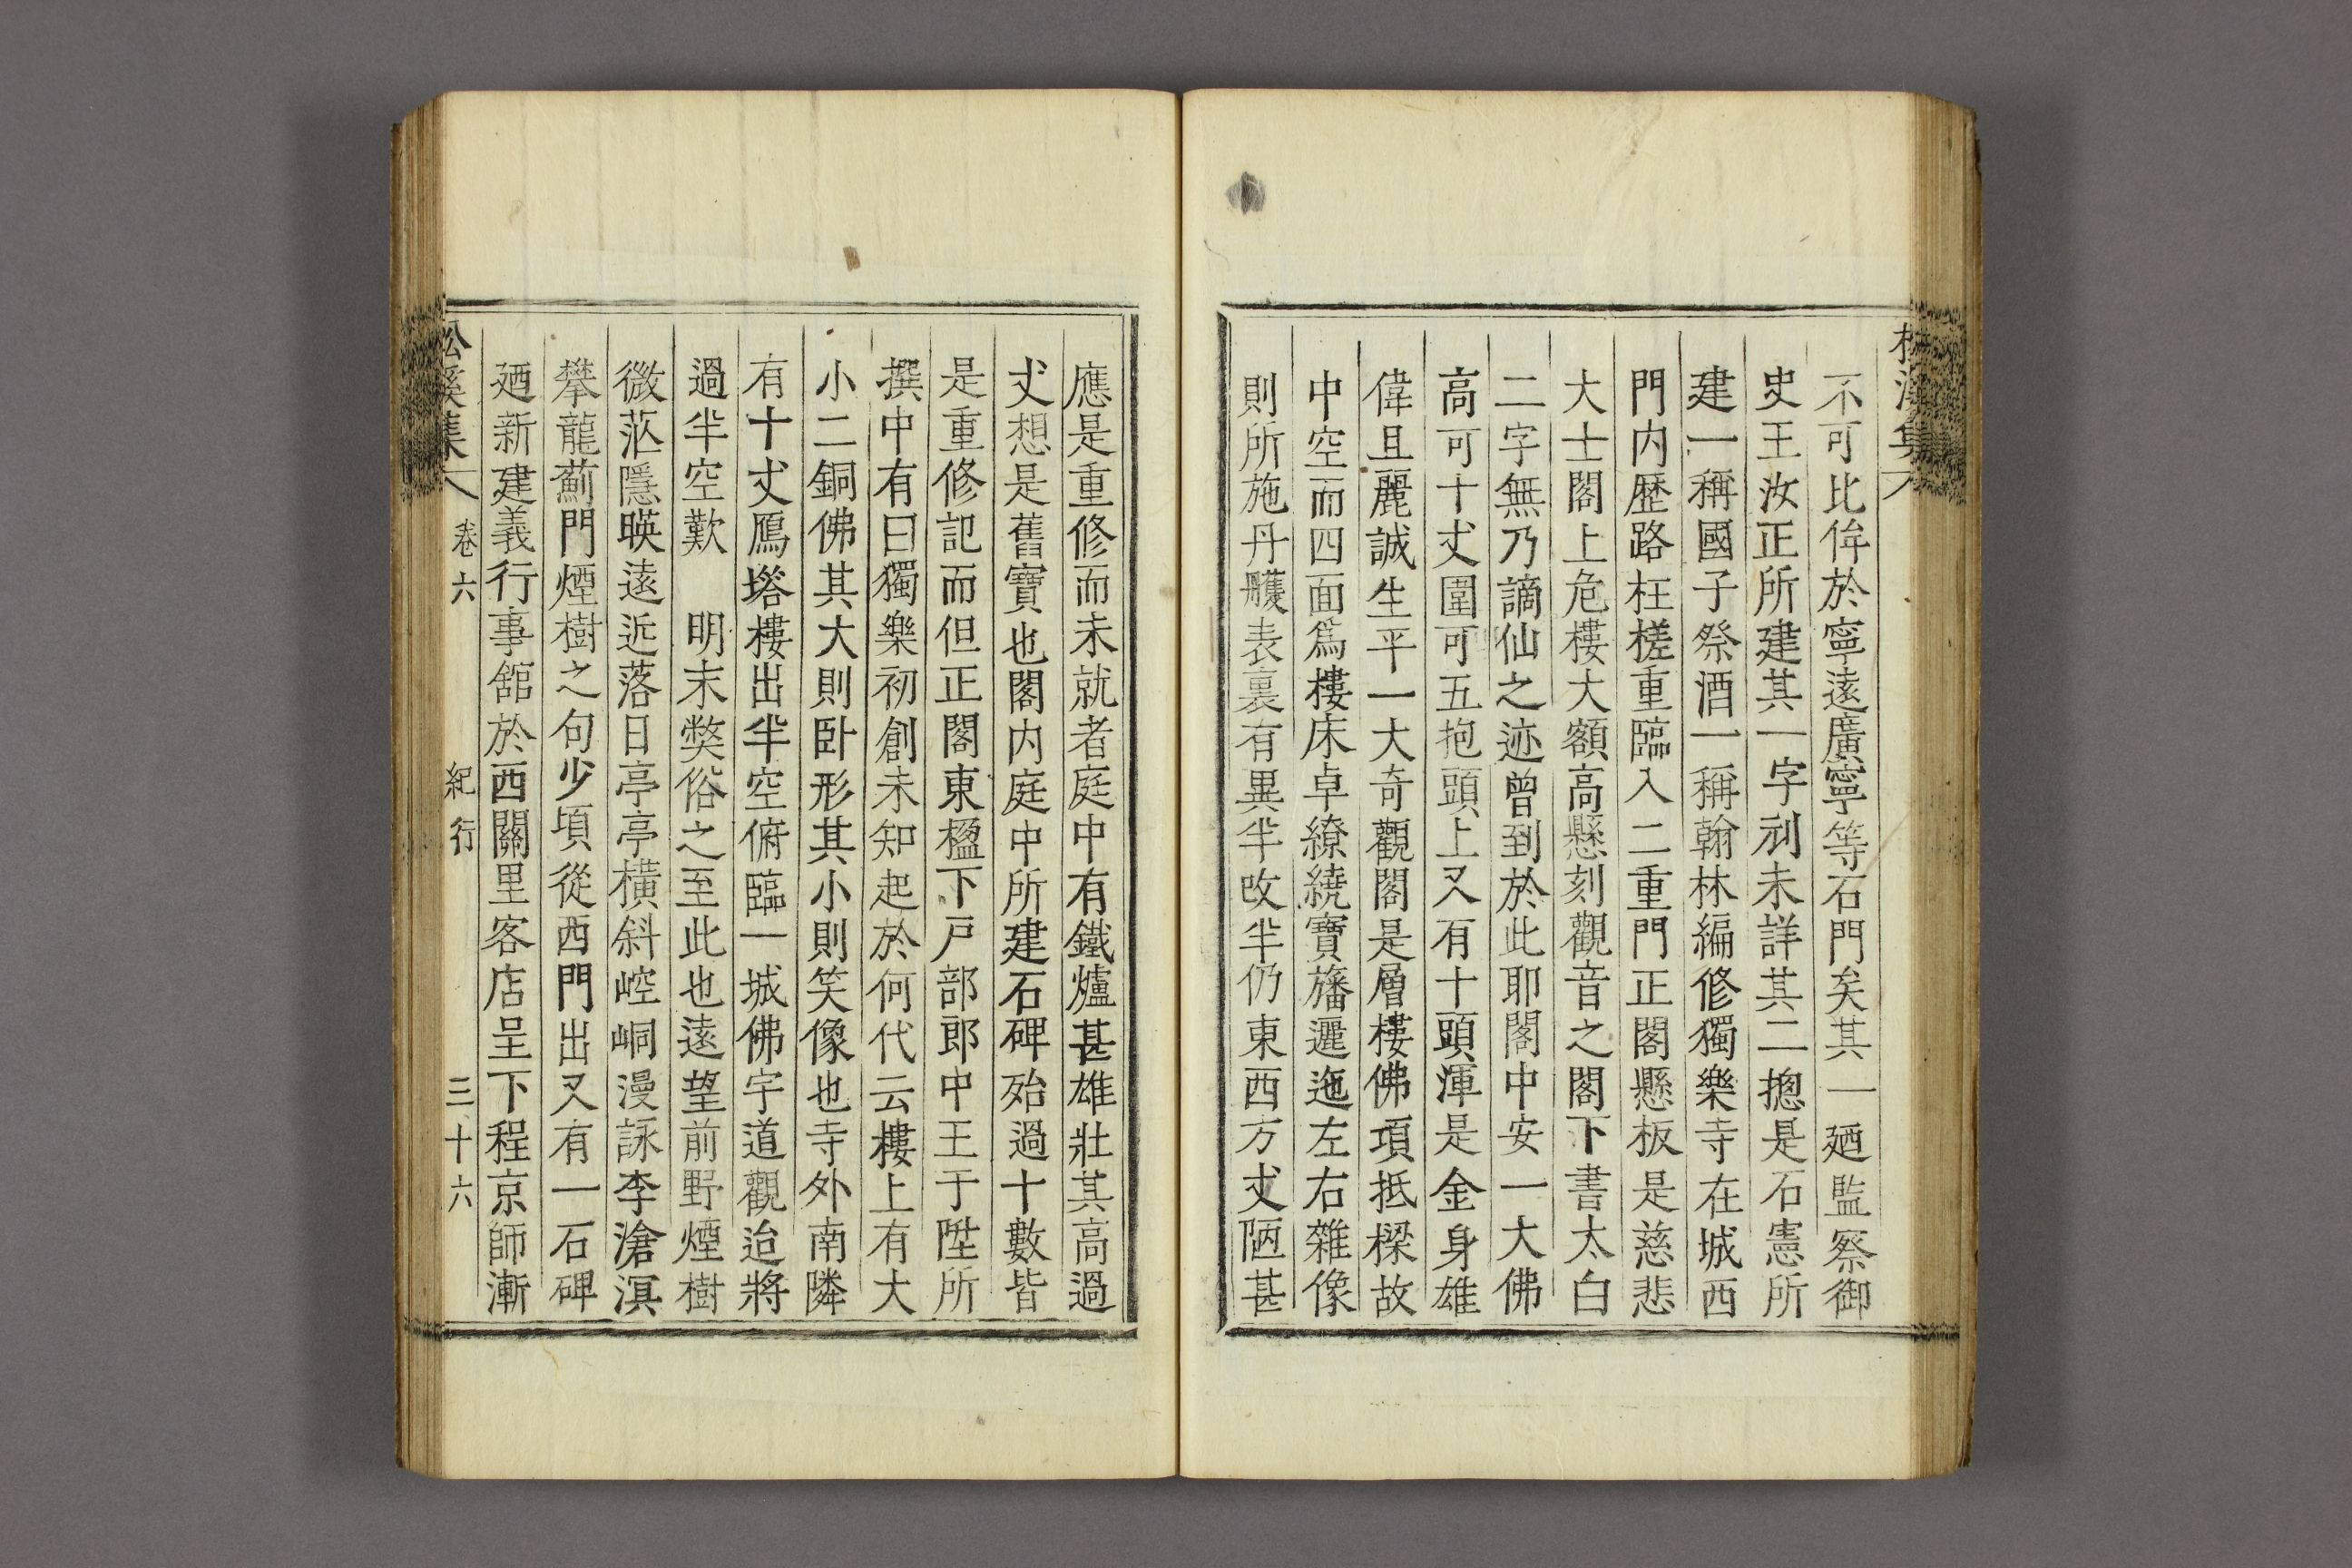 不可比侔於寧遠廣寧等石門矣其一廼監察御
史王汝正所建其一字刓未詳其二摠是石憲所
建一稱國子祭酒一稱翰林編修獨樂寺在城西
門内歷路枉槎重臨入二重門正閣懸板是慈悲
大士閣上危樓大額高懸刻觀音之閣下書太白
二字無乃謫仙之迹曾到於此耶閣中安一大佛
高可十丈圍可五抱頭上又有十頭渾是金身雄
偉且麗誠生平一大奇觀閣是層樓佛項抵樑故
中空而四面爲樓床卓繚繞寶旛邐迤左右雜像
則所施丹雘表裏有異半改半仍東西方丈陋甚
應是重修而未就者庭中有鐵爐甚雄壯其高過
丈想是舊寶也閣内庭中所建石碑殆過十數皆
是重修記而但正閣東楹下戶部郎中王于陛所
撰中有曰獨樂初創未知起於何代云樓上有大
小二銅佛其大則臥形其小則笑像也寺外南隣
有十丈鴈塔樓出半空俯臨一城佛宇道觀迨將
過半空歎　明末獘俗之至此也遠望前野煙樹
微茫隱暎遠近落日亭亭橫斜崆峒漫詠李滄溟
攀龍薊門煙樹之句少頃從西門出又有一石碑
廼新建義行事舘於西關里客店呈下程京師漸
松溪集 卷六 紀行 三十六